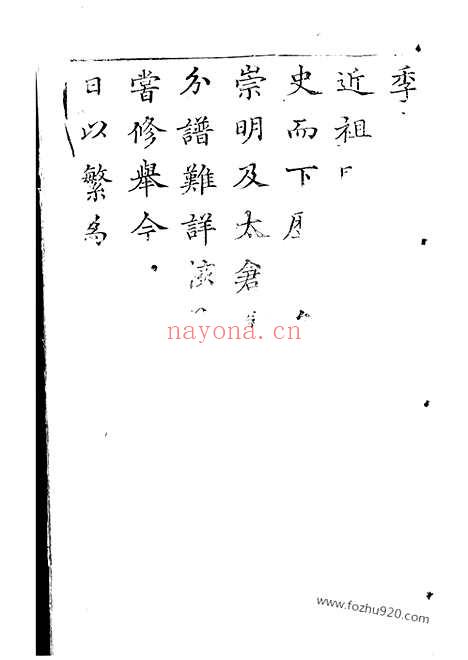 季
近祖
史而下
崇明及太倉
分譜難詳
嘗修舉今
日以繁為
nayona.cn
www.fozhu920.com